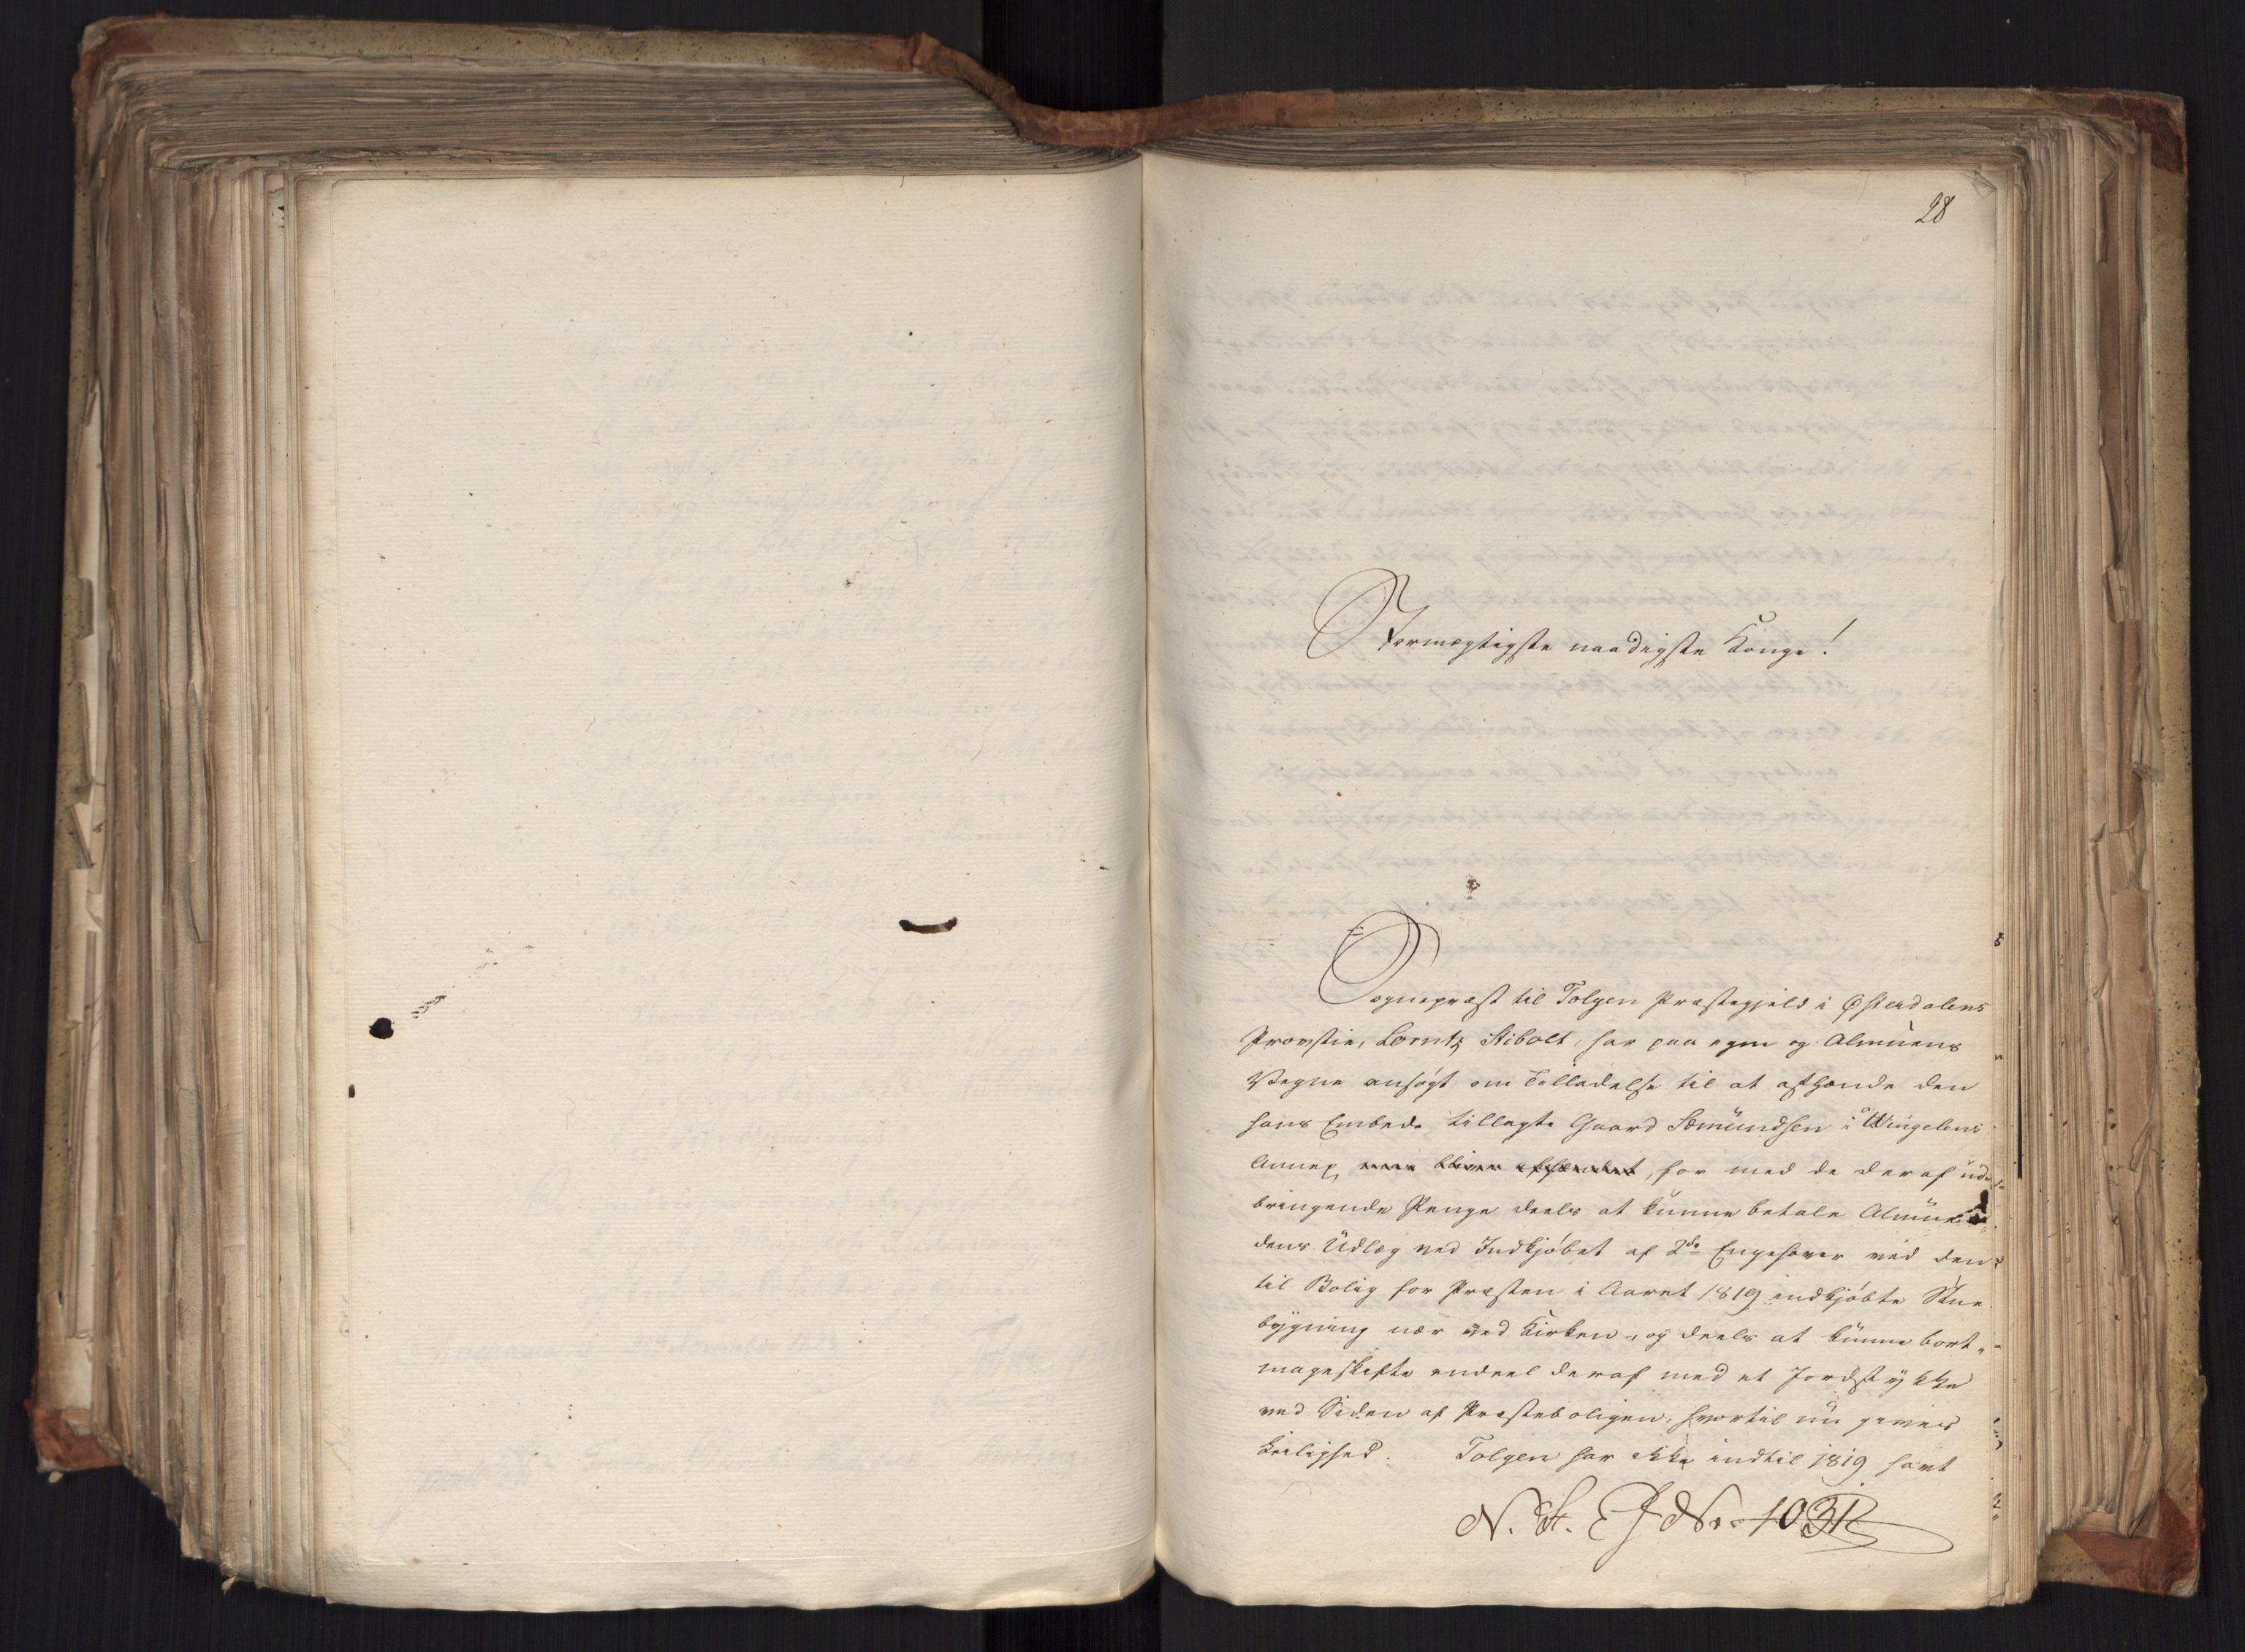 28
Stormægtigste naadigste Konge!
Sognepræst til Tolgen Præstegjeld i Østerdalens
Provstie, Lorntz Stibolt, har paa egne og Almuens
Vegne ansøgt om Tilladelse til at afhænde den
hans Embede tillagte Gaard Semundsen i Wingelens
Annex, maa blive afhændet, for med de deraf ud-
bringende Penge deels at kunne betale Almue-
dens Udlæg ved Indkjøbet af 2de Engehaver ved den
til Bolig for Præsten i Aaret 1819 indkjøbte Stue-
bygning nær ved Kirken, og deels at kunne bort-
mageskifte endeel deraf med et Jordstykke
ved Siden af Præsteboligen, hvortil nu gives
Leilighed. Tolgen har ikke indtil 1819 havt
N. St. E J No. 1031